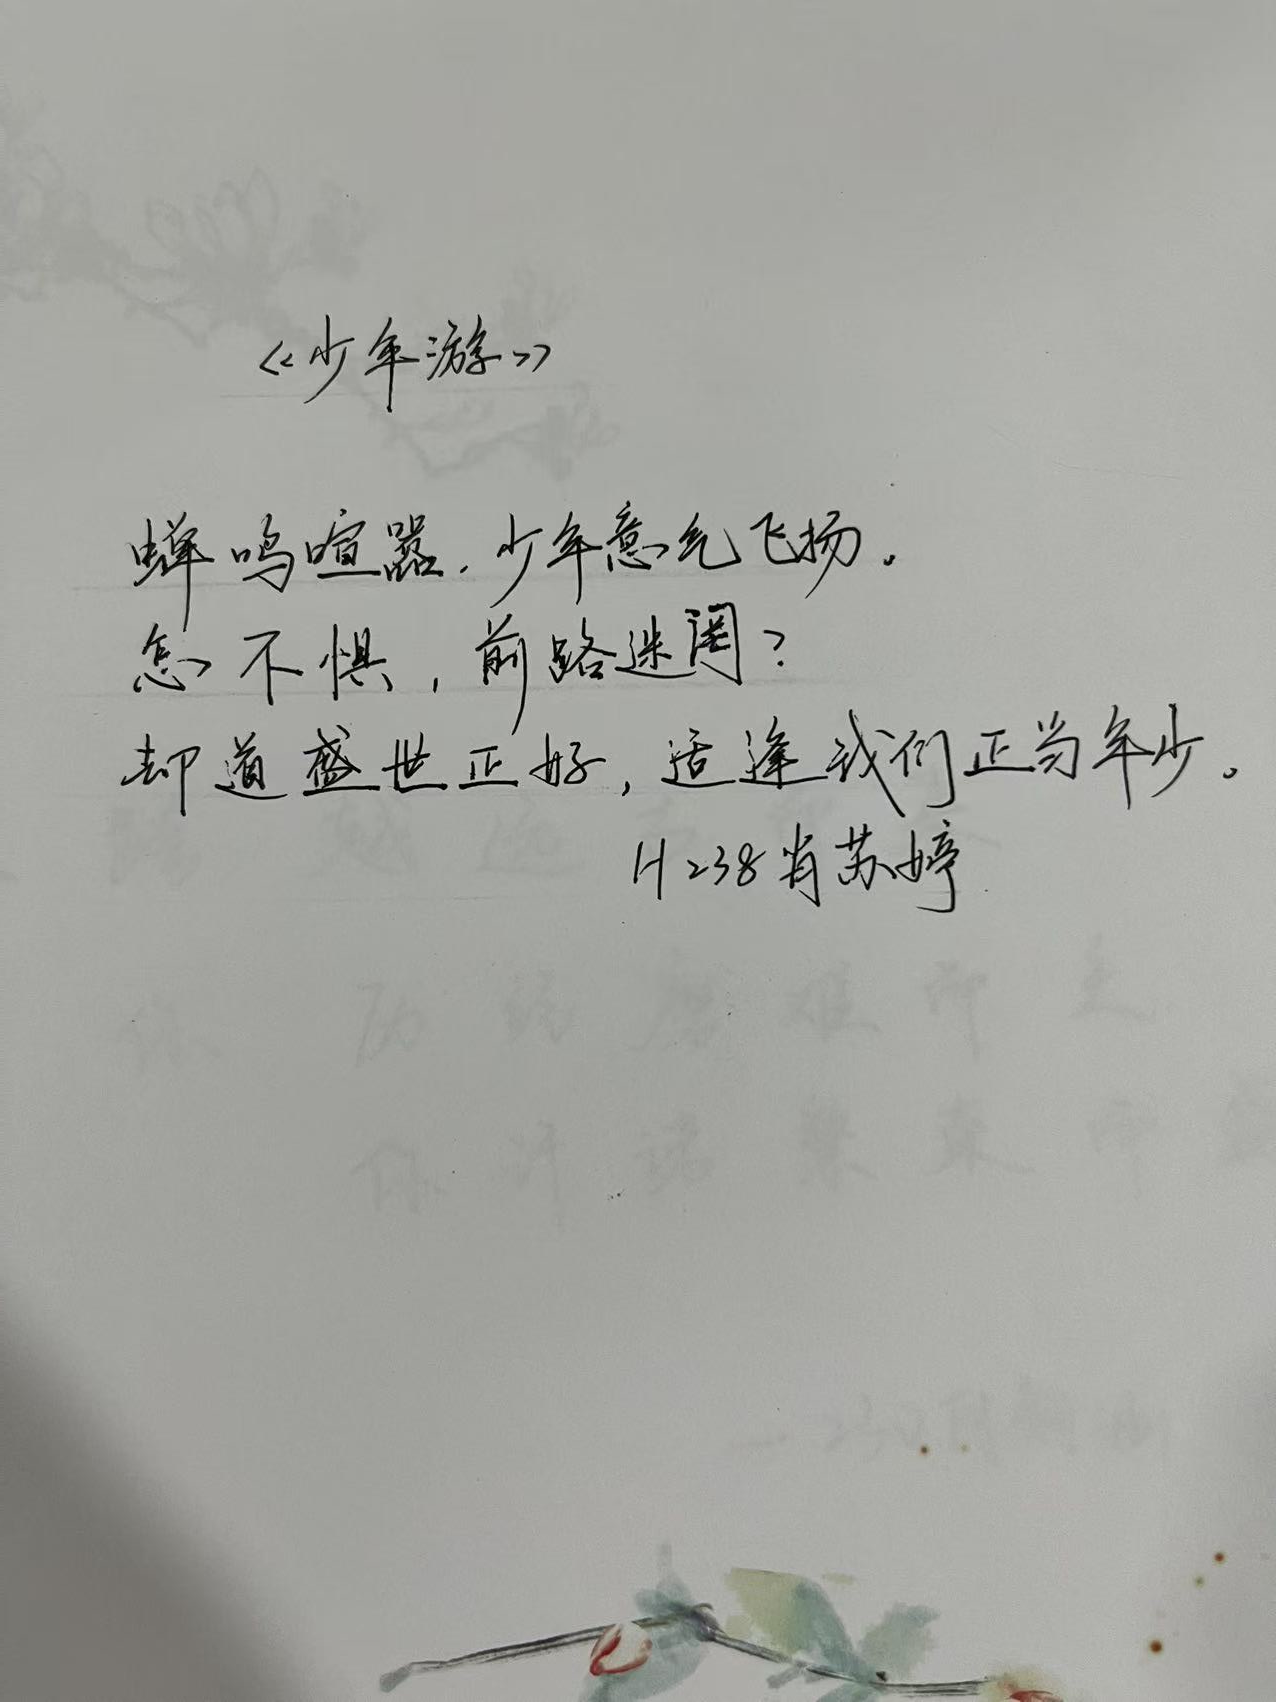 《少年游》
蝉鸣喧嚣，少年意气飞扬。
怎不惧，前路迷罔？
却道盛世正好，适逢我们正当年少。
H238肖苏婷